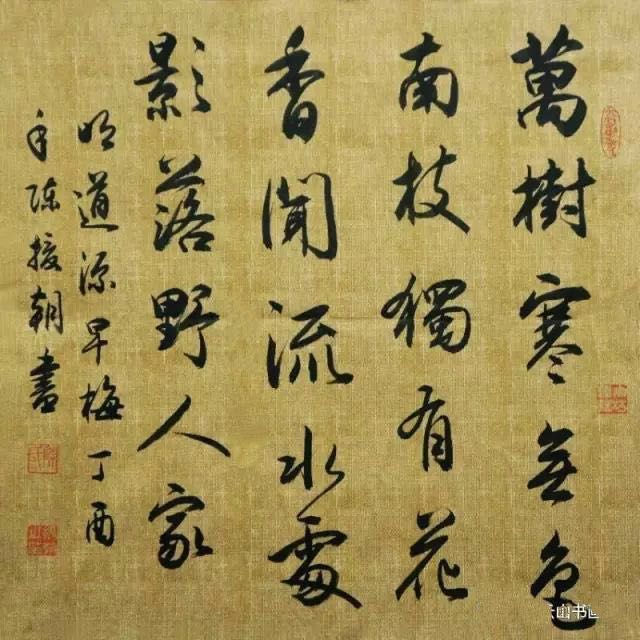 萬樹寒無色
南枝獨有花
香聞流水處
影落野人家
明道源早梅丁酉
年陈援朝書